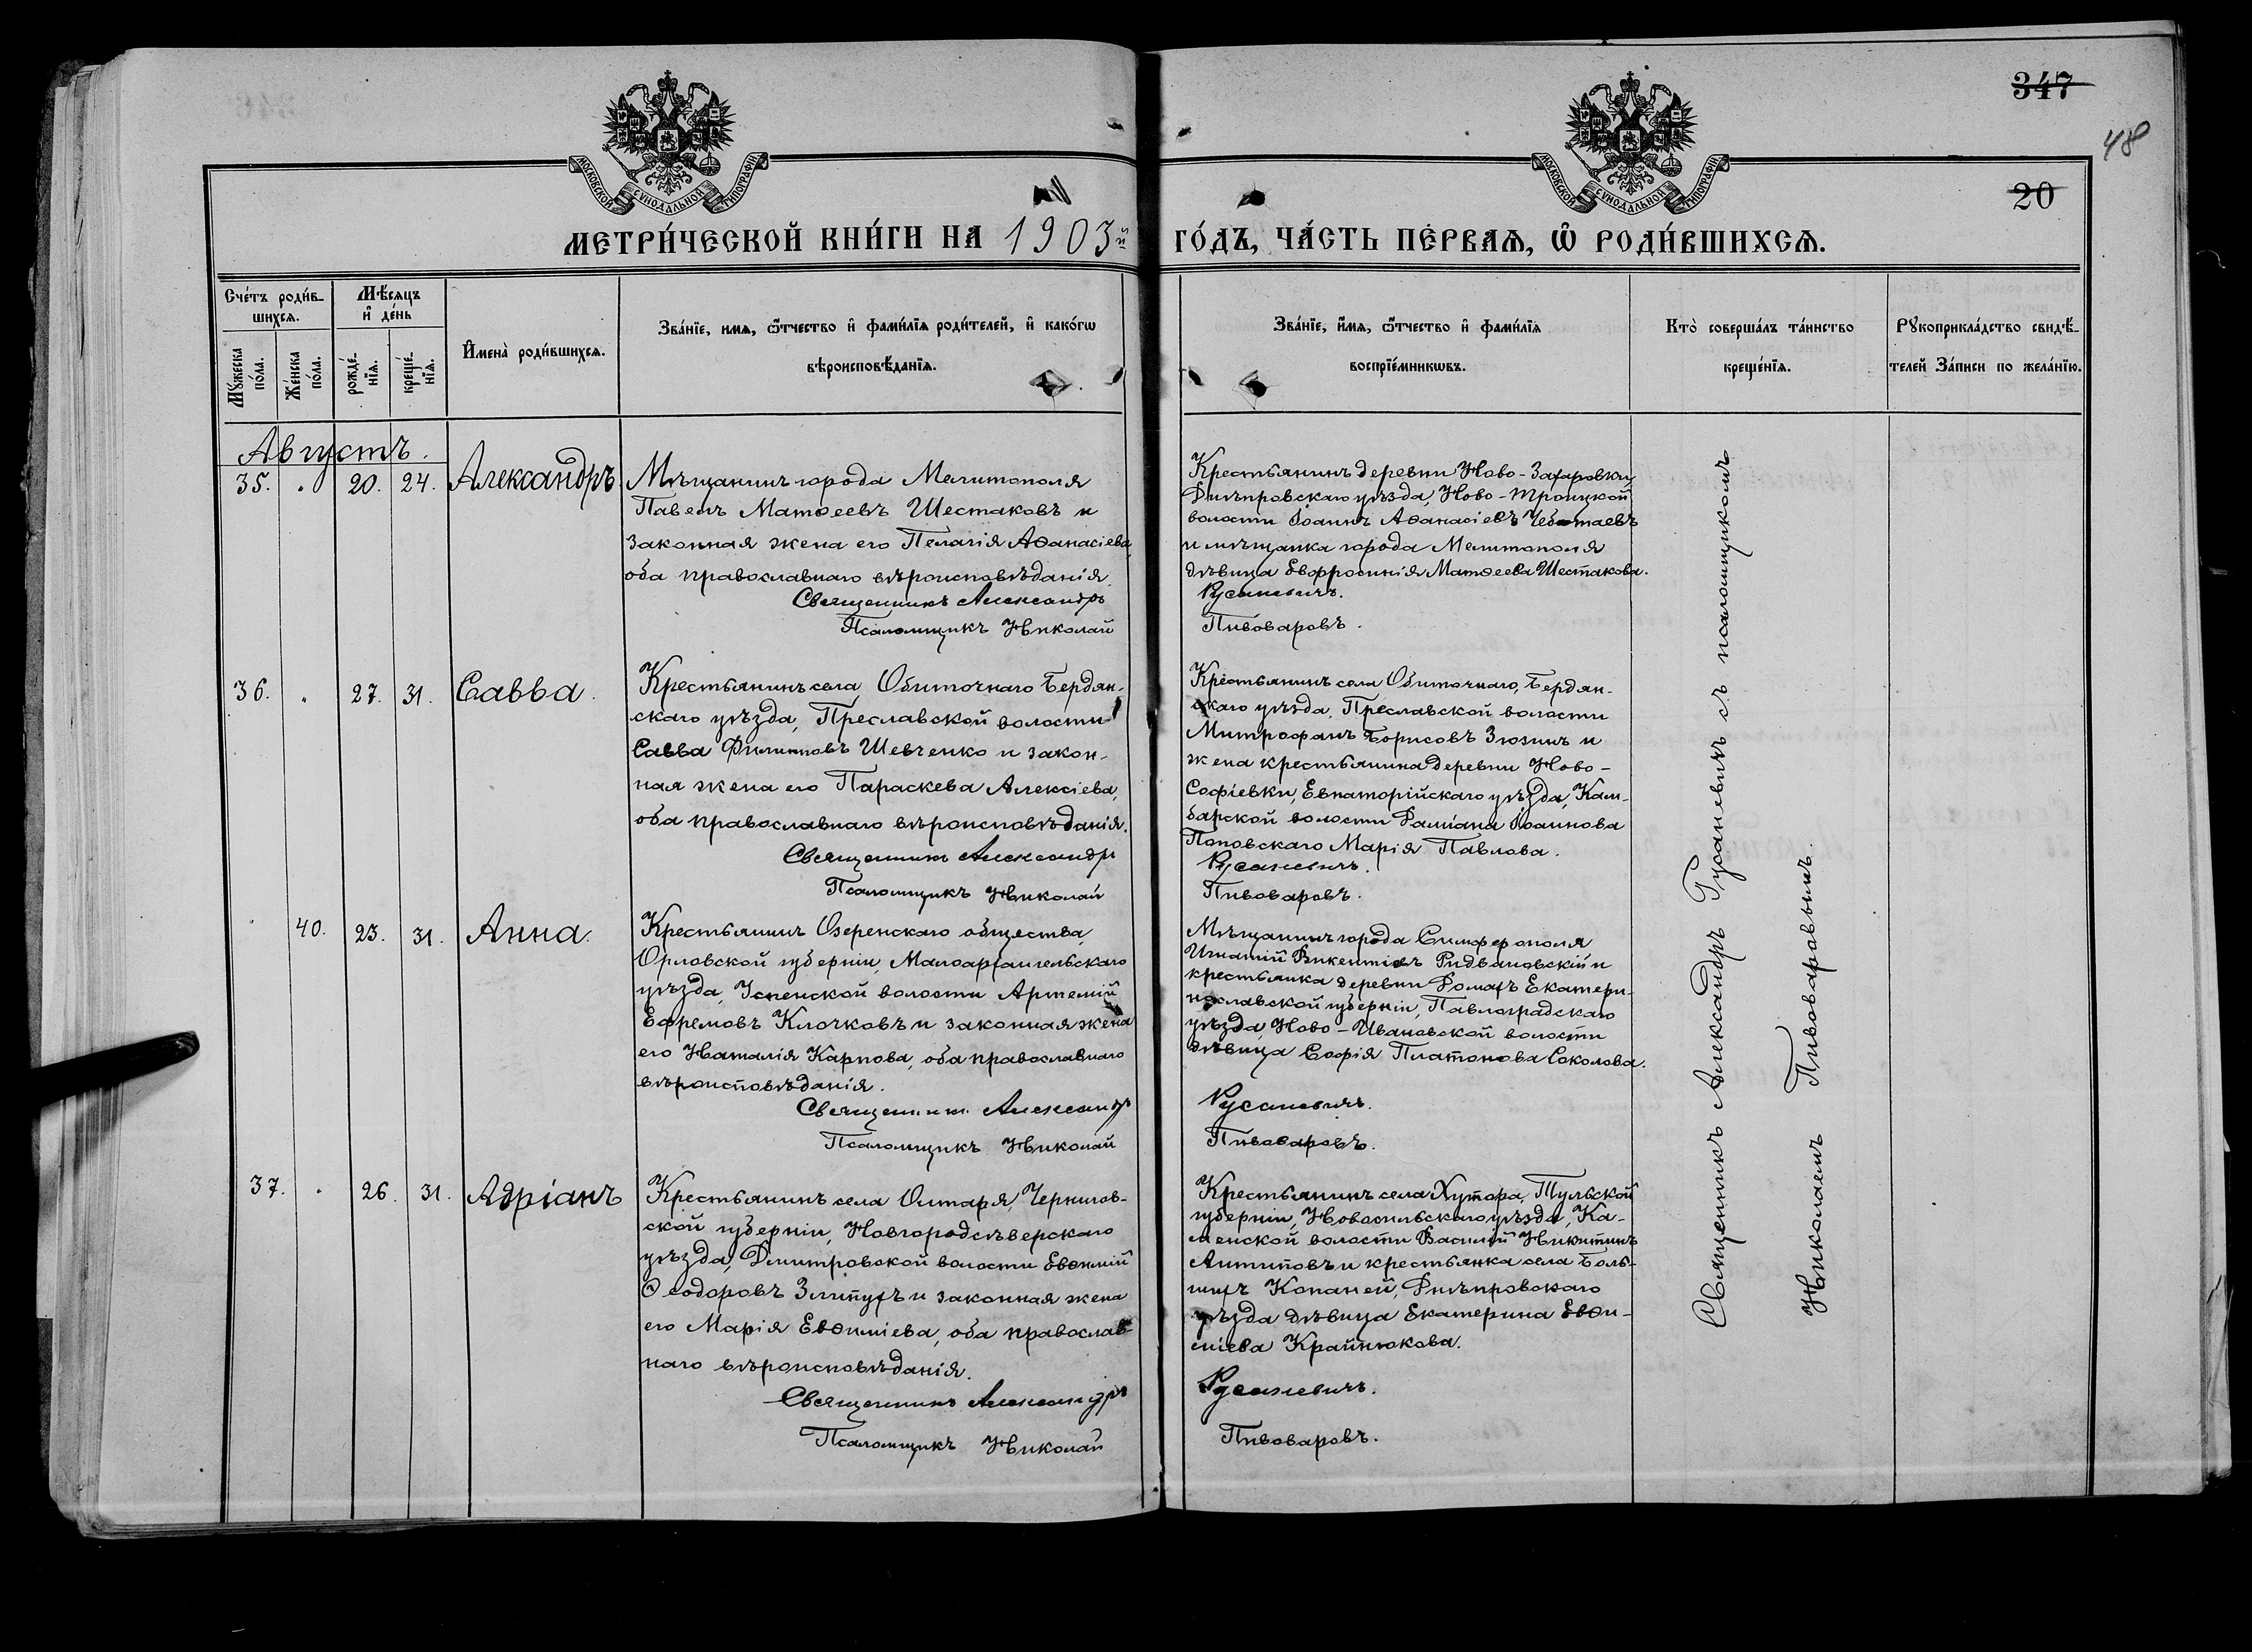 347
48
20
МОСКОВСКОЙ СУНОДАЛЬНОЙ ТИПОГРАФІИ
МОСКОВСКОЙ СУНОДАЛЬНОЙ ТИПОГРАФІИ
МЕТРИ́ЧЕСКОЙ КНИ́ГИ НА 1903й ГО́ДЪ, ЧА́СТЬ ПЕ́РВАѦ, Ѽ РОДИ́ВШИХСѦ.
Сче́тъ роди́в-
шихсѧ.
Мꙋжеска
по́ла.
Же́нска
по́ла.
Мѣ́сяцъ
и҆ де́нь
рожде́-
нїѧ.
креще́-
нїѧ.
И҆мена̀ роди́вшихсѧ.
Зва́нїе, имѧ, ѻ҆́тчество и҆ фами́лїѧ роди́телей, и҆ како́гѡ
вѣроисповѣ́данїѧ.
Зва́нїе, и҆́мѧ, ѻ҆́тчество и҆ фами́лїѧ
воспрїе́мникѡвъ.
Кто̀ соверша́лъ та́инство
креще́нїѧ.
Рꙋкоприкла́дство свидѣ́-
телей За́писи по жела́нїю.
Августъ.
35. " 20. 24. Александръ.
Мѣщанинъ города Мелитополя
Павелъ Матѳеевъ Шестаковъ и
законная жена его Пелагія Аѳанасіева,
оба православнаго вѣроисповѣданія.
Священникъ Александръ
Псаломщикъ Николай
Крестьянинъ деревни Ново-Захаровки,
Днѣпровскаго уѣзда, Ново-Троицкой
волости Іоаннъ Аѳанасіевъ Чеботаевъ
и мѣщанка города Мелитополя
дѣвица Евфросинія Матѳеева Шестакова.
Русаневичъ.
Пивоваровъ.
36. " 27. 31. Савва.
Крестьянинъ села Обиточнаго, Бердян-
скаго уѣзда, Преславской волости
Савва Филипповъ Шевченко и закон-
ная жена его Параскева Алексіева,
оба православнаго вѣроисповѣданія.
Священникъ Александръ
Псаломщикъ Николай
Крестьянинъ села Обиточнаго, Бердян-
скаго уѣзда, Преславской волости
Митрофанъ Борисовъ Зюзинъ и
жена крестьянина деревни Ново-
Софіевки, Евпаторійскаго уѣзда, Кам-
барской волости Даміана Іоаннова
Поповскаго Марія Павлова.
Русаневичъ.
Пивоваровъ.
" 40. 23. 31. Анна.
Крестьянинъ Озеренскаго общества,
Орловской губерніи, Малоархангельскаго
уѣзда, Успенской волости Артемій
Ефремовъ Клочковъ и законная жена
его Наталія Карпова, оба православнаго
вѣроисповѣданія.
Священникъ Александръ
Псаломщикъ Николай
Мѣщанинъ города Симферополя
Игнатій Викентіевъ Ридвановскій и
крестьянка деревни Домахъ Екатери-
нославской губерніи, Павлоградскаго
уѣзда Ново-Ивановской волости
дѣвица Софія Платонова Соколова.
Русаневичъ.
Пивоваровъ.
37. " 26. 31. Адріанъ
Крестьянинъ села Олтаря, Чернигов-
ской губерніи, Новгородсѣверскаго
уѣзда, Дмитровской волости Евѳимій
Ѳеодоровъ Злипухъ и законная жена
его Марія Евѳиміева, оба православ-
наго вѣроисповѣданія.
Священникъ Александръ
Псаломщикъ Николай
Крестьянинъ села Хутора, Тульской
губерніи, Новосильскаго уѣзда, Ка-
менской волости Василій Никитинъ
Антиповъ и крестьянка села Боль-
шихъ Копаней, Днѣпровскаго
уѣзда дѣвица Екатерина Евѳи-
міева Крайнюкова.
Русаневичъ.
Пивоваровъ.
Священникъ Александръ Русаневичъ съ псаломщикомъ
Николаемъ Пивоваровымъ.